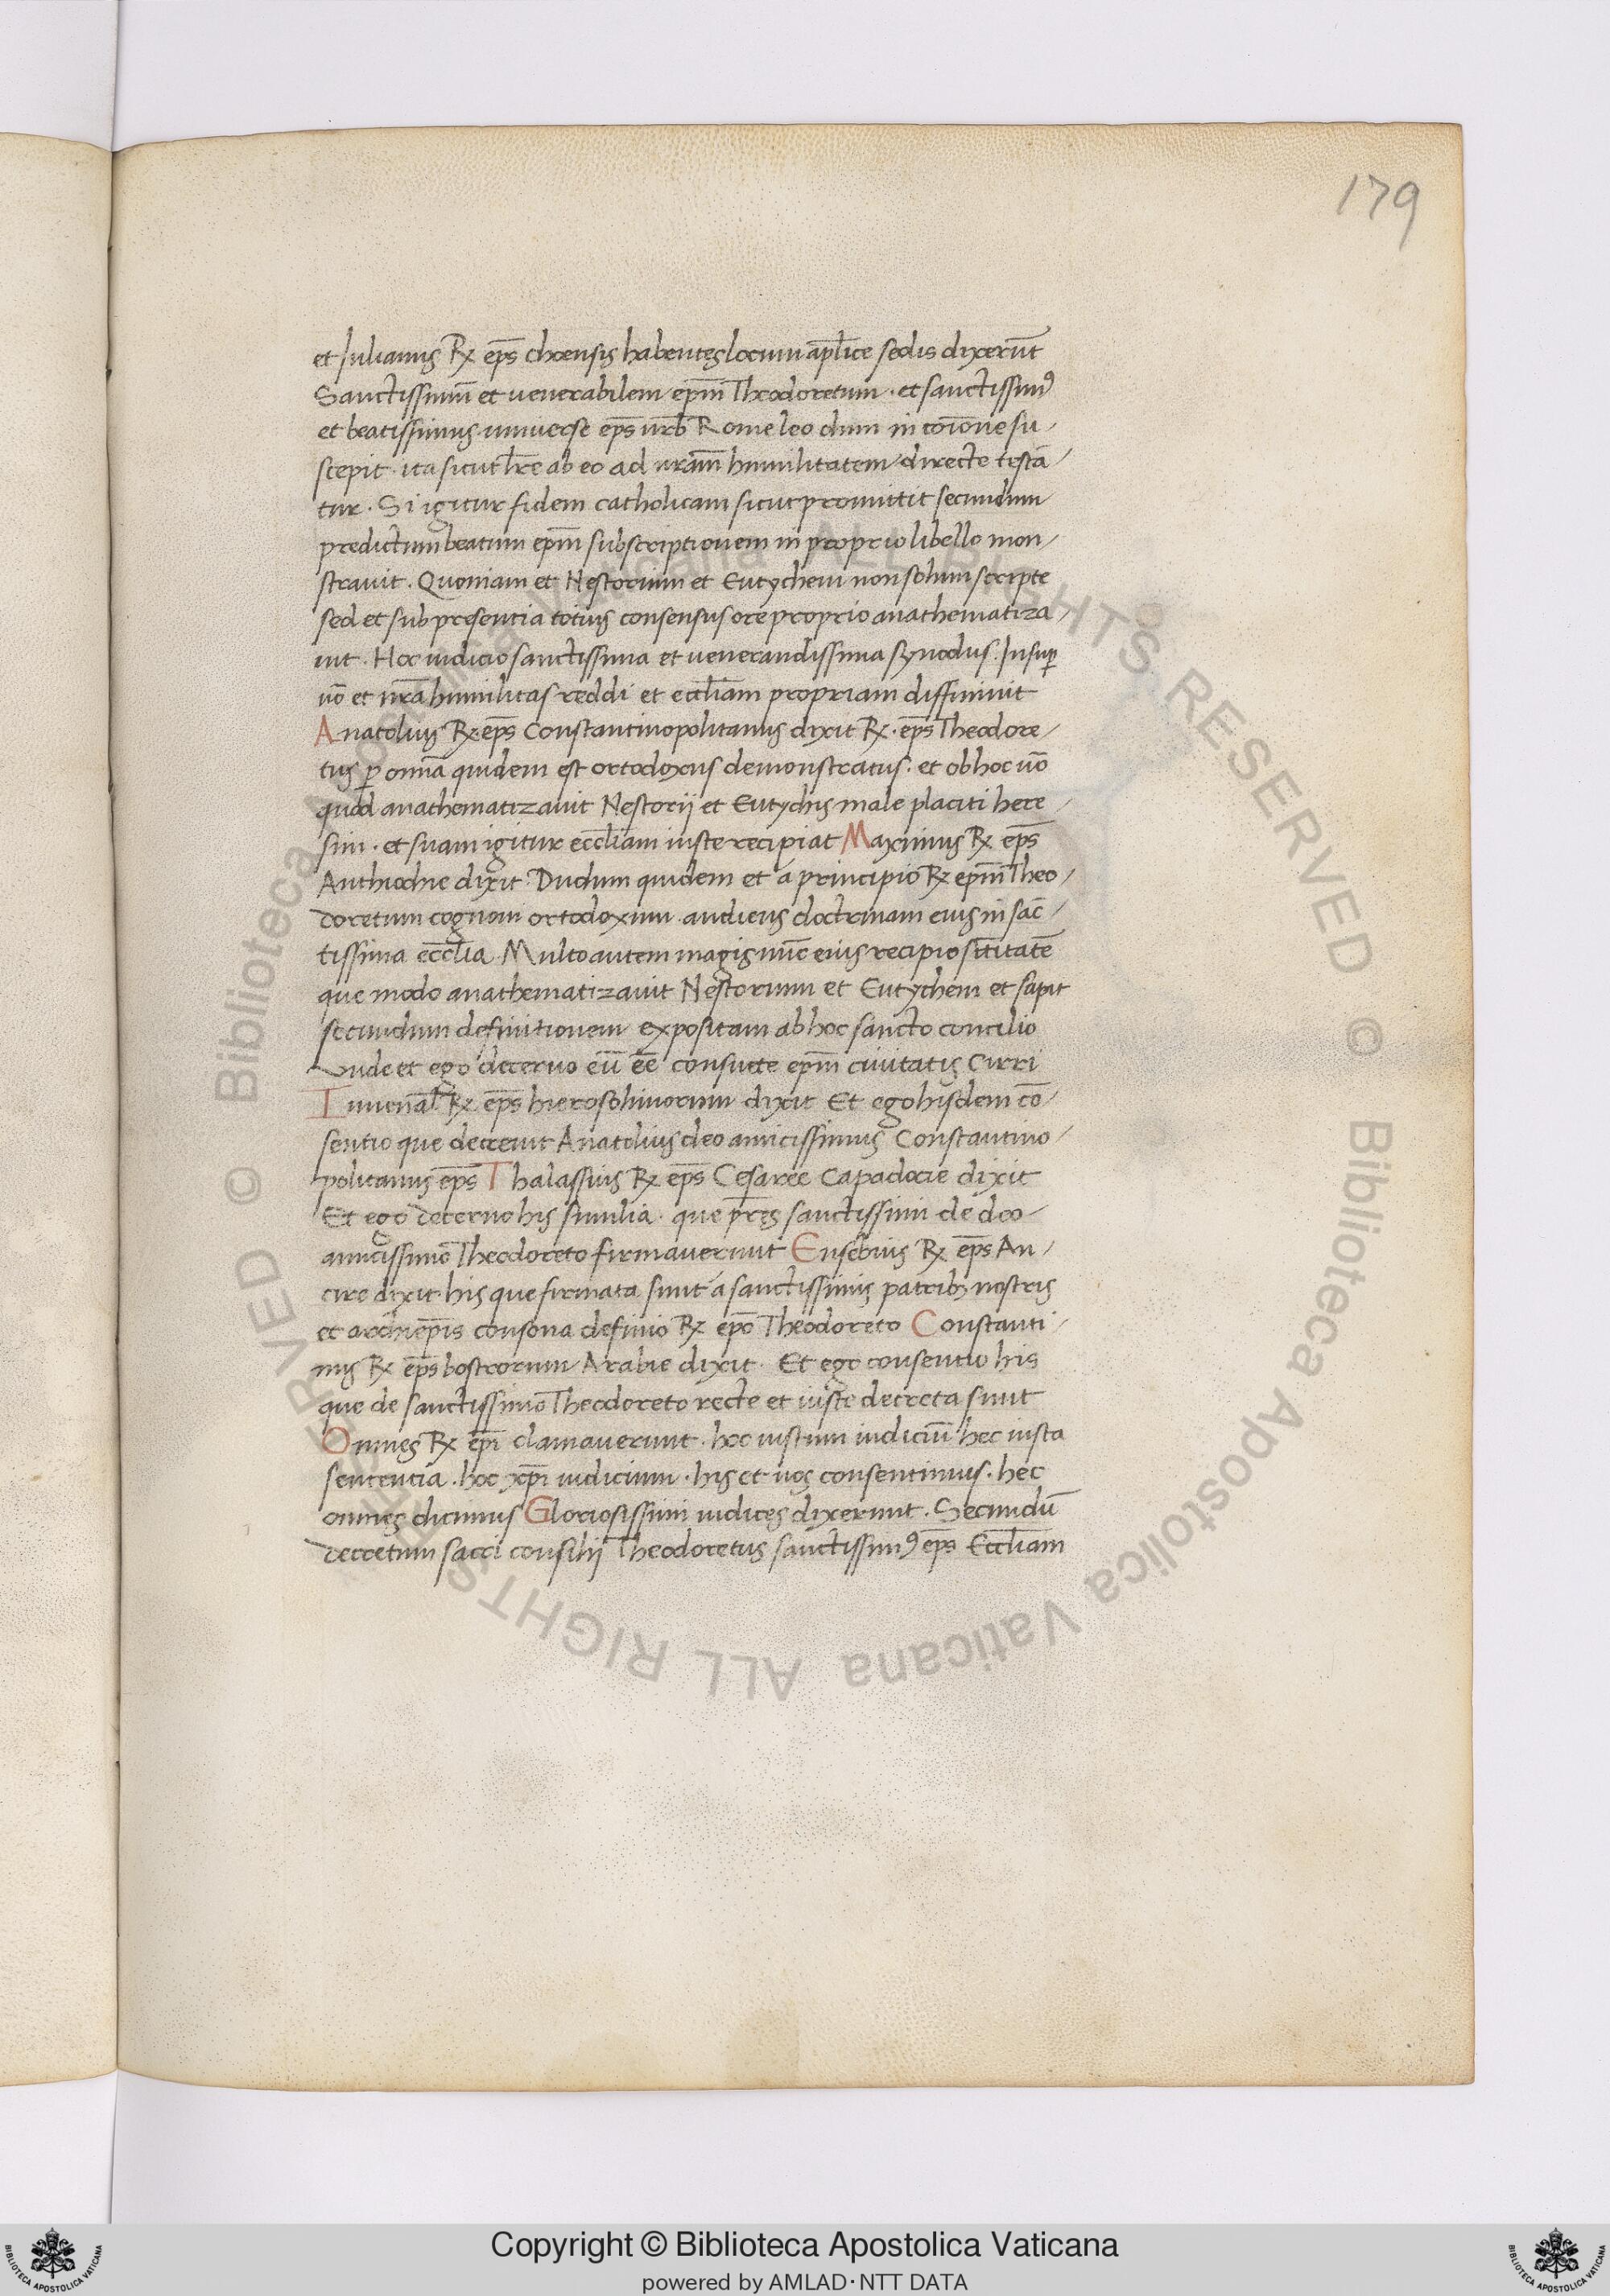 179
et Iulianus Rx ep̄s choensis habentes locum ap̄lice sedis dixerūt
Sanctissimū et venerabilem ep̄m Theodoretum · et sanctissimꝰ
et beatissimus universe ep̄s urb̄ Rome leo dum in coīone su-
scepit · ita sicut lr̄e ab eo ad nr̄am humilitatem directe testā-
tur · Si igitur fidem catholicam sicut promittit secundum
predictum beatum ep̄m subscriptionem in proprio libello mon-
stravit . Quoniam et Nestorium et Eutychem non solum scripte
sed et sub presentia totius consensus ore proprio anathematiza-
vit . Hoc iudicio sanctissima et venerandissima synodus . Insuꝑ
uō et nr̄a humilitas reddi et eccl̄iam propriam diffinivit
Anatolius Rx ep̄s Constantinopolitanus dixit Rx · ep̄s Theodore-
tus ꝑ omnā quidem est ortodoxus demonstratus . et ob hoc uō
quod anathematizavit Nestorij et Eutychis male placiti here-
sim · et suam igitur eccl̄iam iuste recipiat Maximus Rx ep̄s
Anthiochie dixit . Dudum quidem et a principio Rx ep̄m Theo-
doretum cognovi ortodoxum audiens doctrinam eius in sāc-
tissima eccl̄ia . Multo autem magis nūc eius recipio sc̄titatē
que modo anathematizavit Nestorium et Eutychem et sapit
secundum definitionem expositam ab hoc sancto concilio
Unde et ego decerno eū ēē consulte ep̄m civitatis Cirri
Iuvenal̄ Rx ep̄s hierosolimorum dixit Et ego hisdem cō-
sentio que decrevit Anatolius deo amicissimus Constantino-
politanus ep̄s Thalassius Rx ep̄s Cesaree Capadocie dixit
Et ego decerno his similia . que pr̄es sanctissimi de deo-
amicissimo Theodoreto firmaverunt Eusebius Rx ep̄s An-
cire dixit . his que firmata sunt a sanctissimis patribꝫ nostris
et archiep̄is consona definio Rx ep̄o Theodoreto Constanti-
nus Rx ep̄s bostrorum Arabie dixit . Et ego consentio his
que de sanctissimo Theodoreto recte et iuste decreta sunt
Omnes Rx ep̄i clamaverunt . hoc iustum iudiciū hec iusta
sententia . hoc xp̄i iudicium . his et nos consentimus . hec
omnes dicimus Gloriosissimi iudices dixerunt . Secundū
decretum sacri consilij Theodoretus sanctissimꝰ ep̄s Eccl̄iam
© Biblioteca Apostolica Vaticana ALL RIGHTS RESERVED © Biblioteca Apostolica Vaticana ALL RIGHTS RESERVED
Copyright © Biblioteca Apostolica Vaticana
powered by AMLAD·NTT DATA
BIBLIOTECA APOSTOLICA VATICANA
BIBLIOTECA APOSTOLICA VATICANA